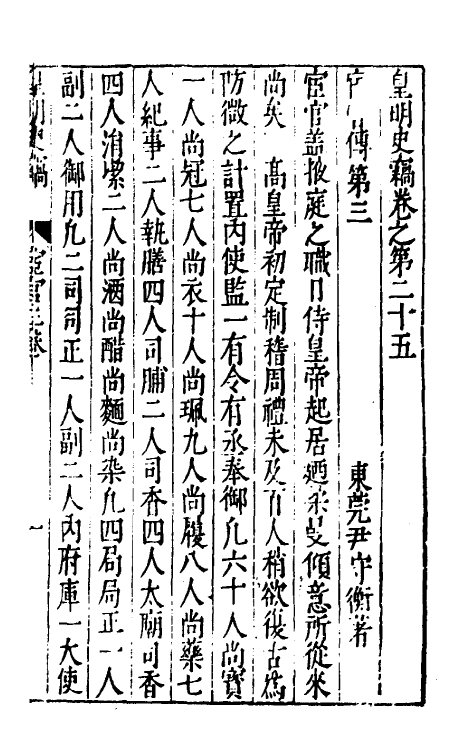 皇明史竊卷之第二十五
傳第三 東莞尹守衡著
宦官蓋掖庭之職日侍皇帝起居迺柔叟傾意所從來
尚矣 高皇帝初定制稽周禮未及百人稍欲復古為
防微之計置內使監一有令有丞奉御凡六十人尚寶
一人尚冠七人尚衣十人尚珮九人尚履八人尚藥七
人紀事二人執膳四人司脯二人司香四人太廟司香
四人涓潔二人尚酒尚醋尚麵尚染凡四局局正一人
副二人御用凡二司司正一人副二人內府庫一大使
皇明史竊